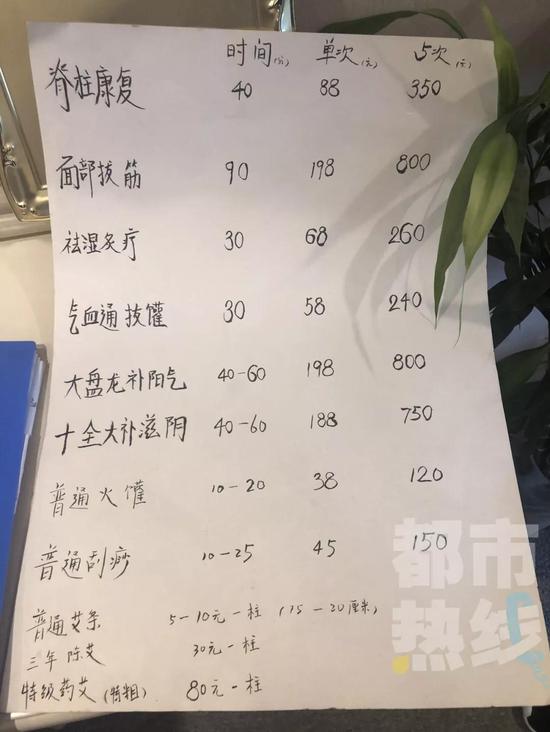 时间(分) 单次(元) 5次(元)
脊柱康复 40 88 350
面部拔筋 90 198 800
祛湿灸疗 30 68 260
气血通拔罐 30 58 240
大盘龙补阳气 40-60 198 800
十全大补滋阴 40-60 188 750
普通火罐 10-20 38 120
普通刮痧 10-25 45 150
普通艾条 5-10元一柱 (15-20厘米)
三年陈艾 30元一柱
特级药艾(特粗) 80元一柱
都市热线